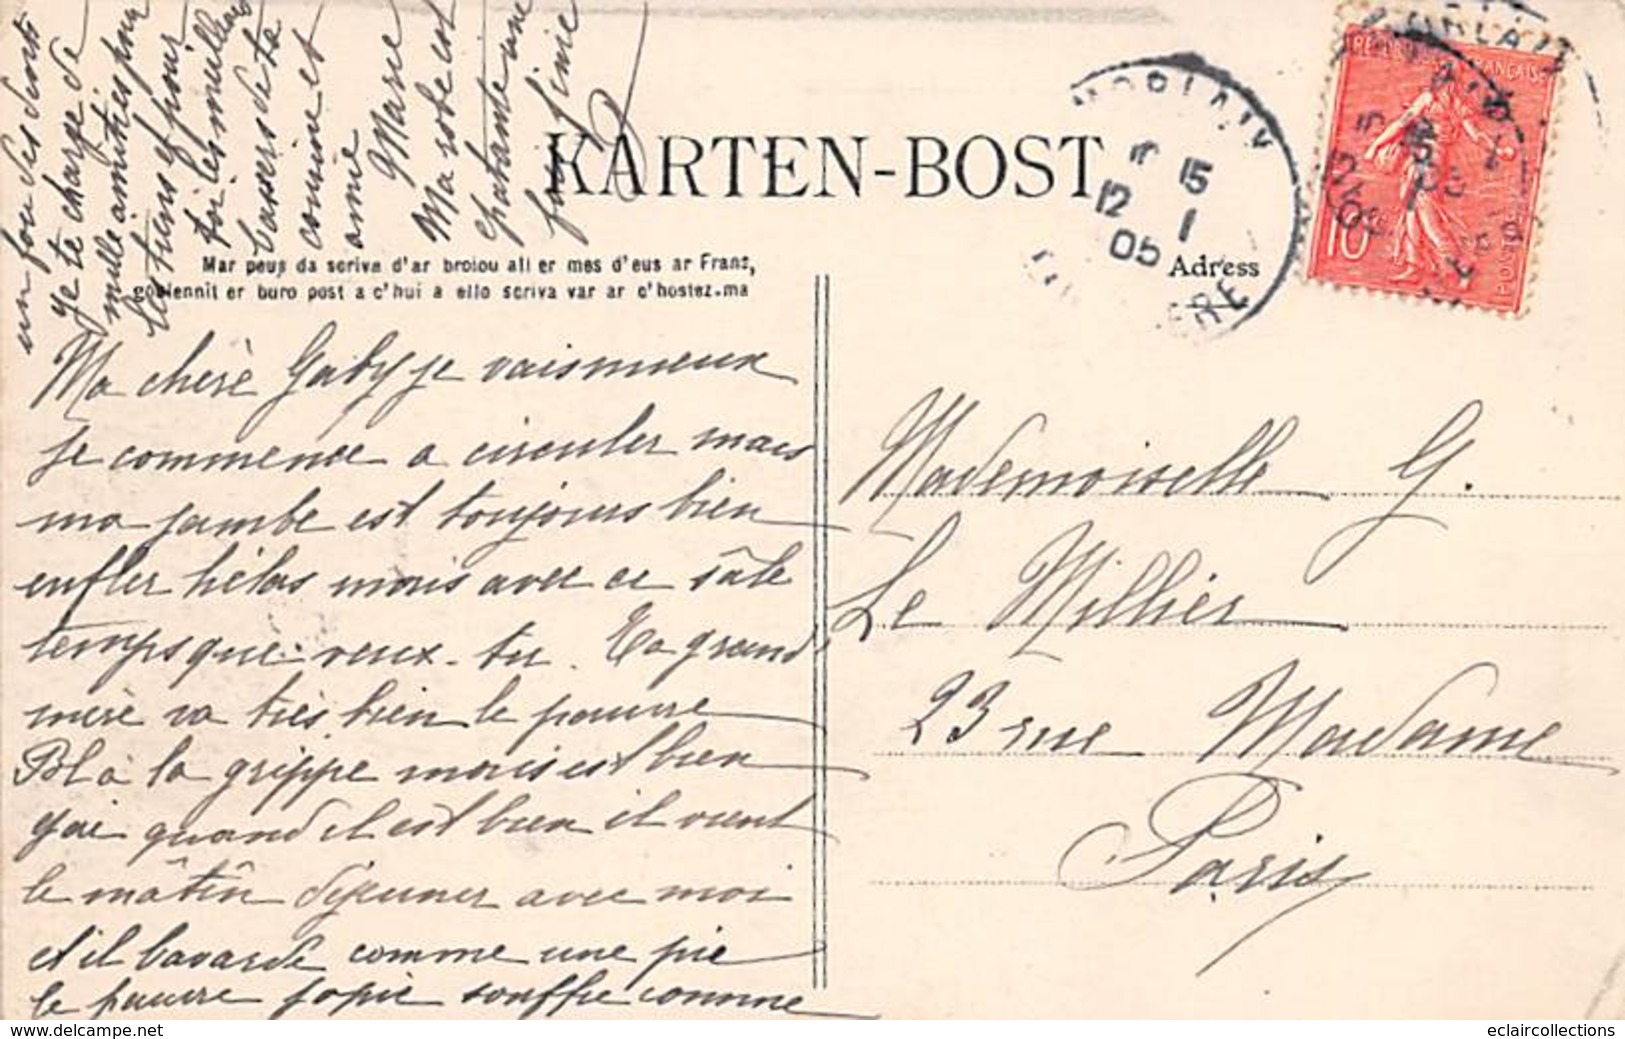 KARTEN-BOST
Mar peus da scriva d'ar broiou all er mes d'eus ar Frans,
goulennit er buro post a c'hui a ello scriva var ar c'hostez-ma
Adress
MORLAIX
15
12 1
05
FINISTERE
REPUBLIQUE FRANÇAISE
10
POSTES
Ma chère Gaby je vais mieux
je commence a circuler mais
ma jambe est toujours bien
enfler hélas mais avec ce sâle
temps que veux-tu. Ta grand'
mère va très bien le pauvre
Pol à la grippe mais est bien
gai quand il est bien il vient
le mâtin déjeuner avec moi
et il bavarde comme une pie
le pauvre papie souffre comme
un fou ses dents
Je te charge de
mille amitiés pour
les tiens et pour
toi les meilleurs
baisers de ta
cousine et
amie
Marie
Ma robe est
épatante une
fois finie
Mademoiselle G.
Le Millier
23 rue Madame
Paris
www.delcampe.net
eclaircollections